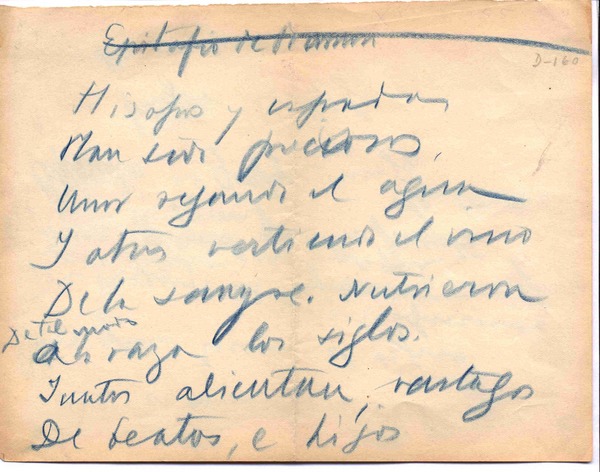 Epitafio de
D-160
Hisopos y espadas
Han sido precisos,
Unos regando el agua
Y otros vertiendo el vino
De la sangre. Nutrieron
De tal modo
a la raza los siglos.
Juntos alientan, vastagos
De beatos, e hijos